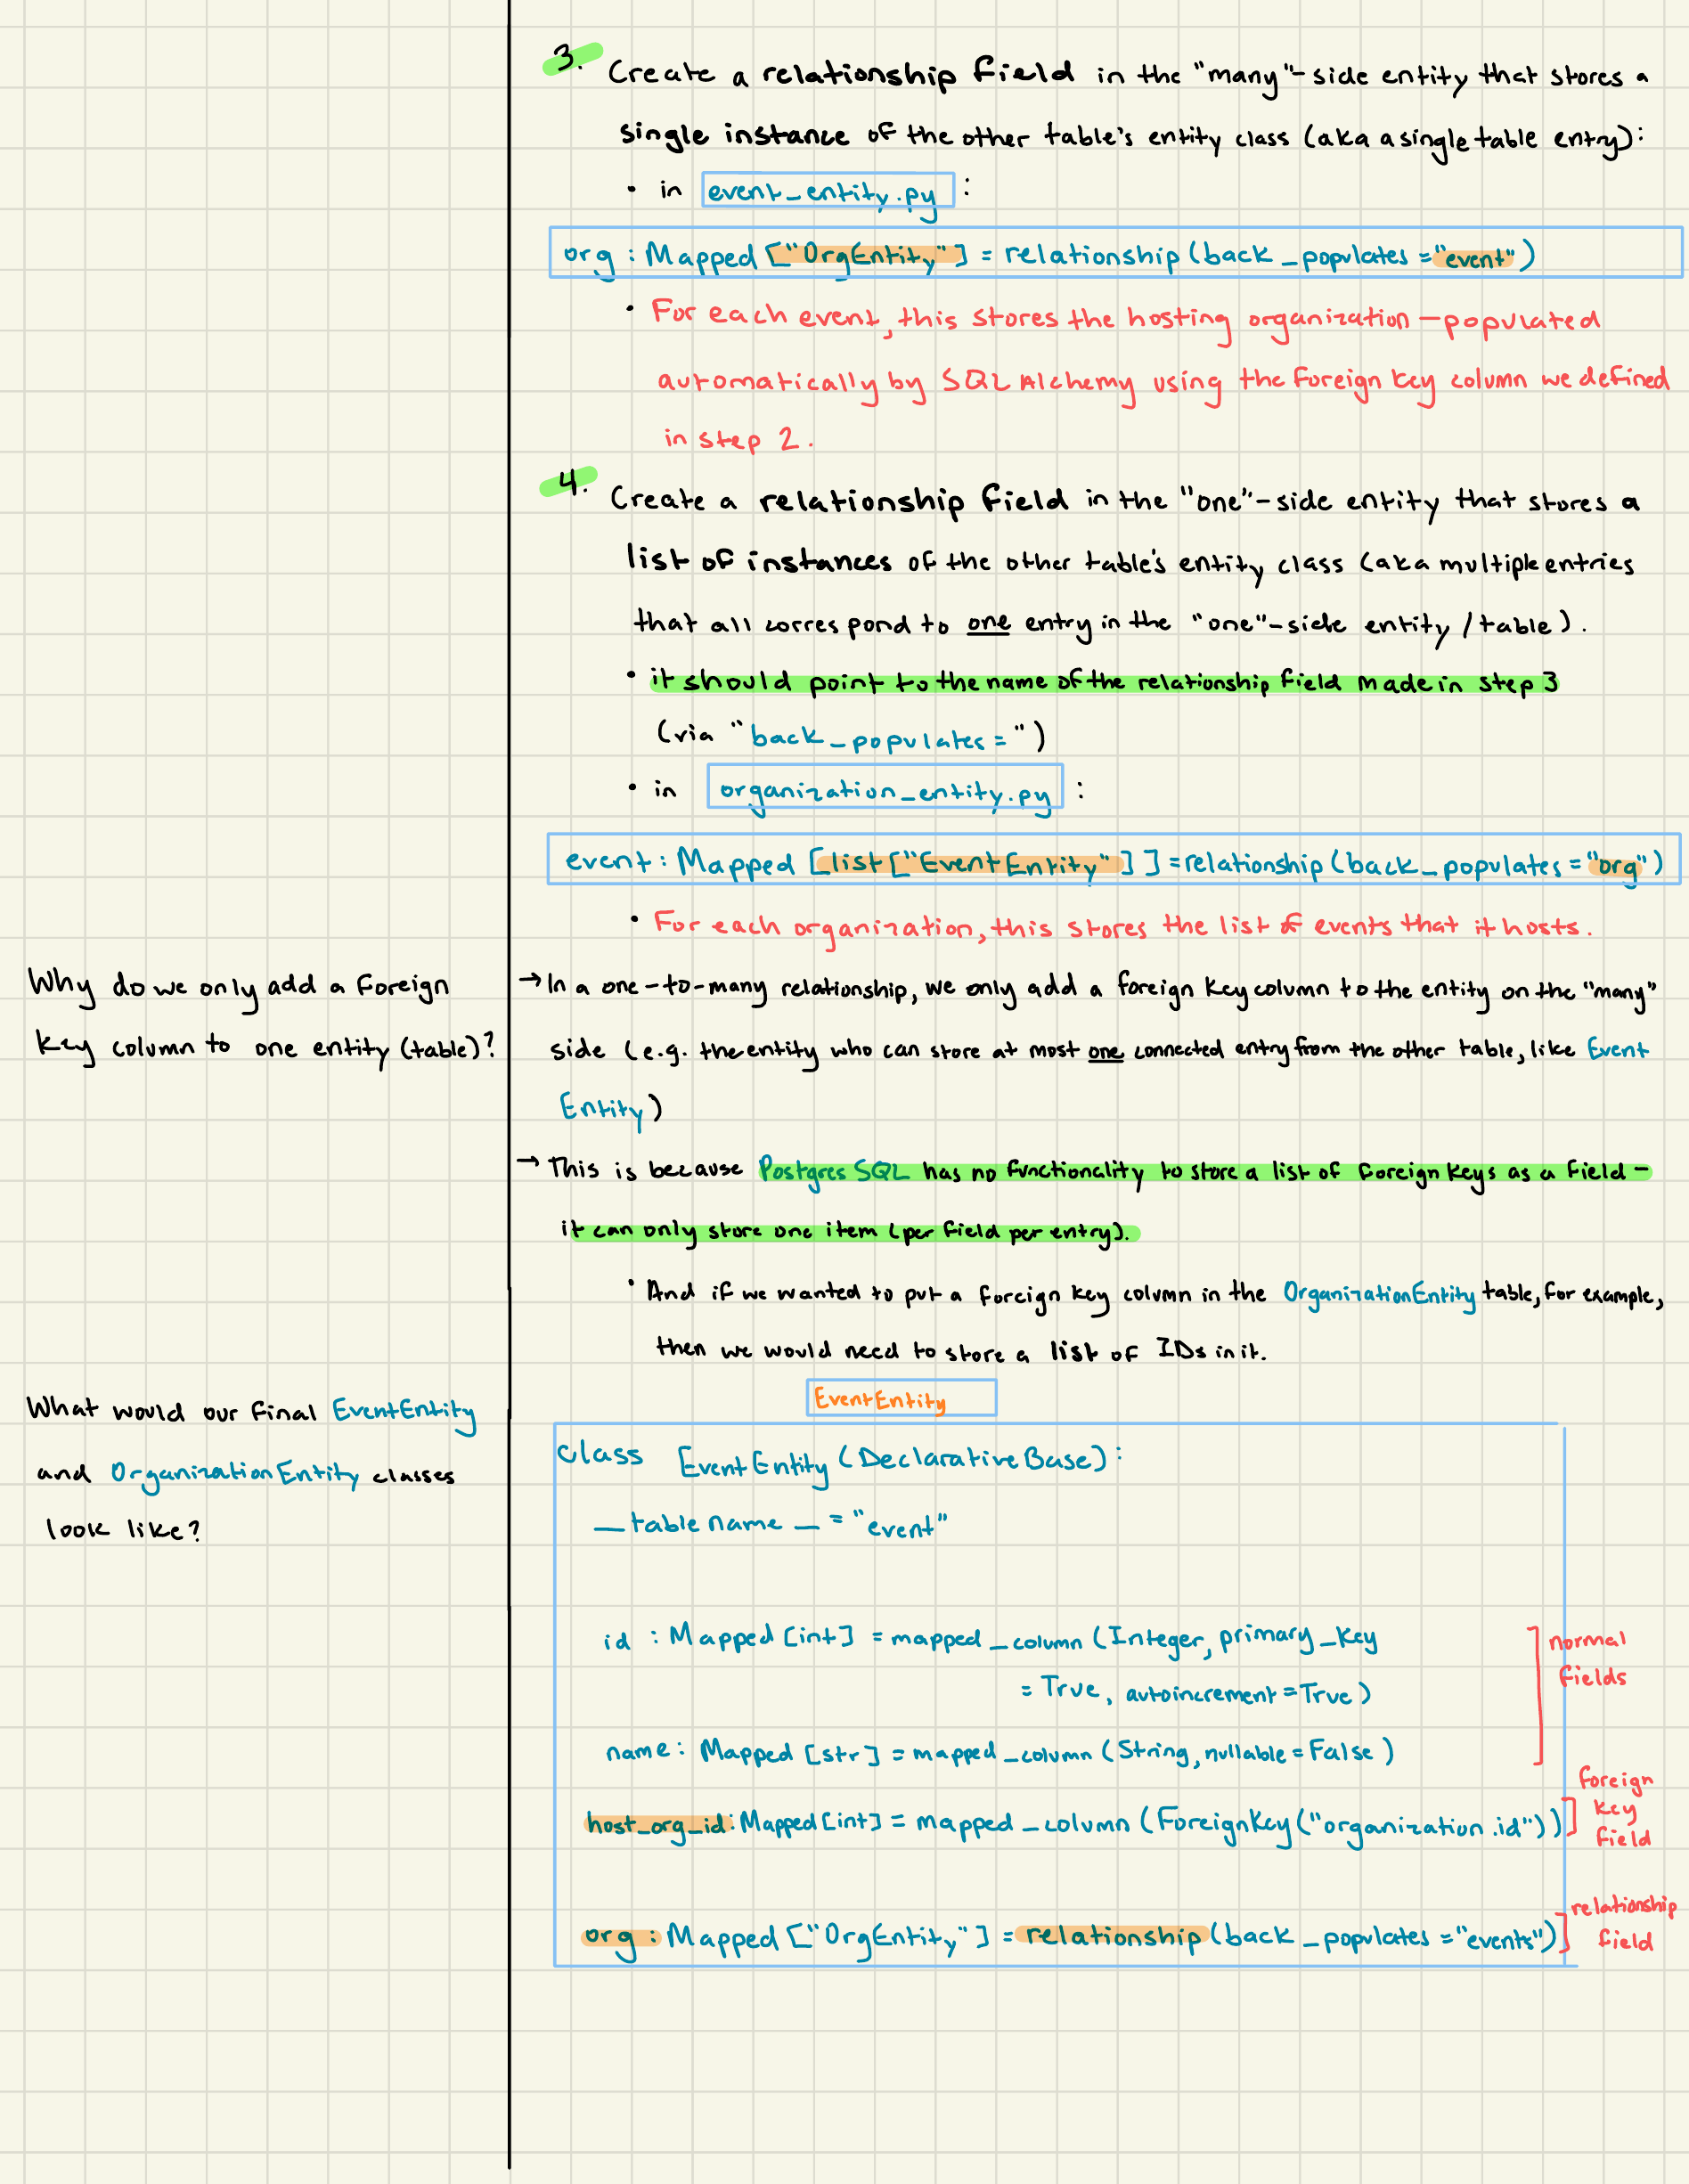 3. Create a relationship field in the "many"-side entity that stores a
single instance of the other table's entity class (aka a single table entry):
• in event_entity.py :
org : Mapped ["OrgEntity"] = relationship (back_populates = "event")
• For each event, this stores the hosting organization — populated
automatically by SQL Alchemy using the foreign key column we defined
in step 2.
4. Create a relationship field in the "one"-side entity that stores a
list of instances of the other table's entity class (aka multiple entries
that all correspond to one entry in the "one"-side entity / table).
• it should point to the name of the relationship field made in step 3
(via "back_populates = ")
• in organization_entity.py :
event : Mapped [list["EventEntity"]] = relationship (back_populates = "org")
• For each organization, this stores the list of events that it hosts.
Why do we only add a foreign
key column to one entity (table)?
→ In a one-to-many relationship, we only add a foreign key column to the entity on the "many"
side (e.g. the entity who can store at most one connected entry from the other table, like Event
Entity)
→ This is because Postgres SQL has no functionality to store a list of foreign keys as a field –
it can only store one item (per field per entry).
• And if we wanted to put a foreign key column in the OrganizationEntity table, for example,
then we would need to store a list of IDs in it.
What would our final EventEntity
and OrganizationEntity classes
look like?
EventEntity
class EventEntity (DeclarativeBase):
_tablename_ = "event"
id : Mapped [int] = mapped_column (Integer, primary_key
= True, autoincrement = True)
name : Mapped [str] = mapped_column (String, nullable = False)
normal
fields
host_org_id : Mapped [int] = mapped_column (ForeignKey ("organization.id"))
foreign
key
field
org : Mapped ["OrgEntity"] = relationship (back_populates = "events")
relationship
field